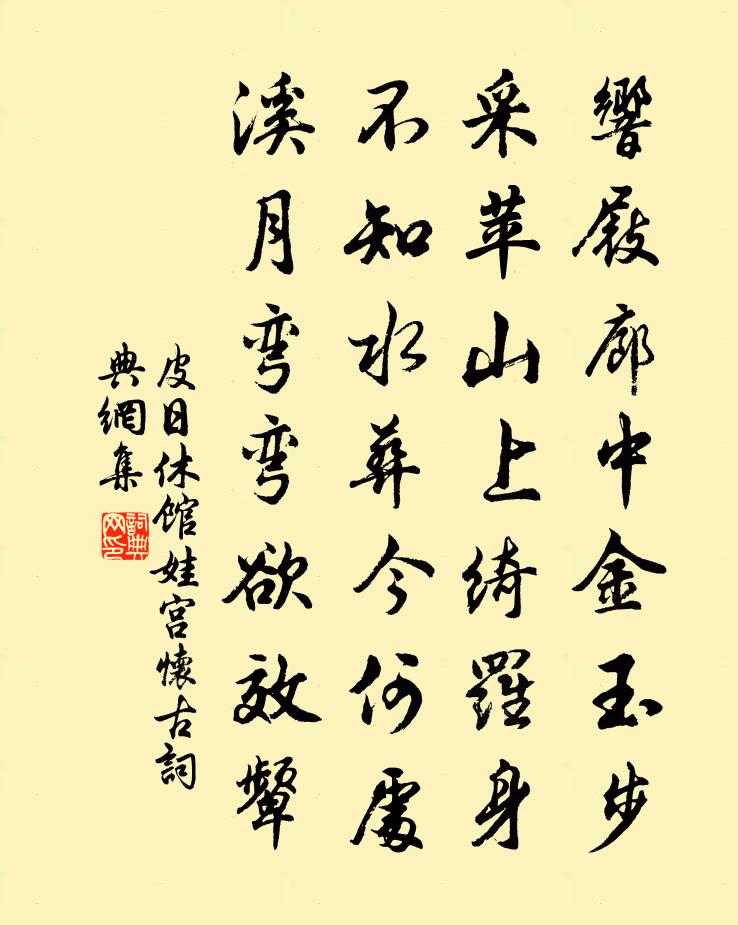 響屐廊中金玉步
采苹山上綺羅身
不知水葬今何處
溪月弯弯欲效顰
皮日休館娃宮懷古詞
典網集
詞典网印